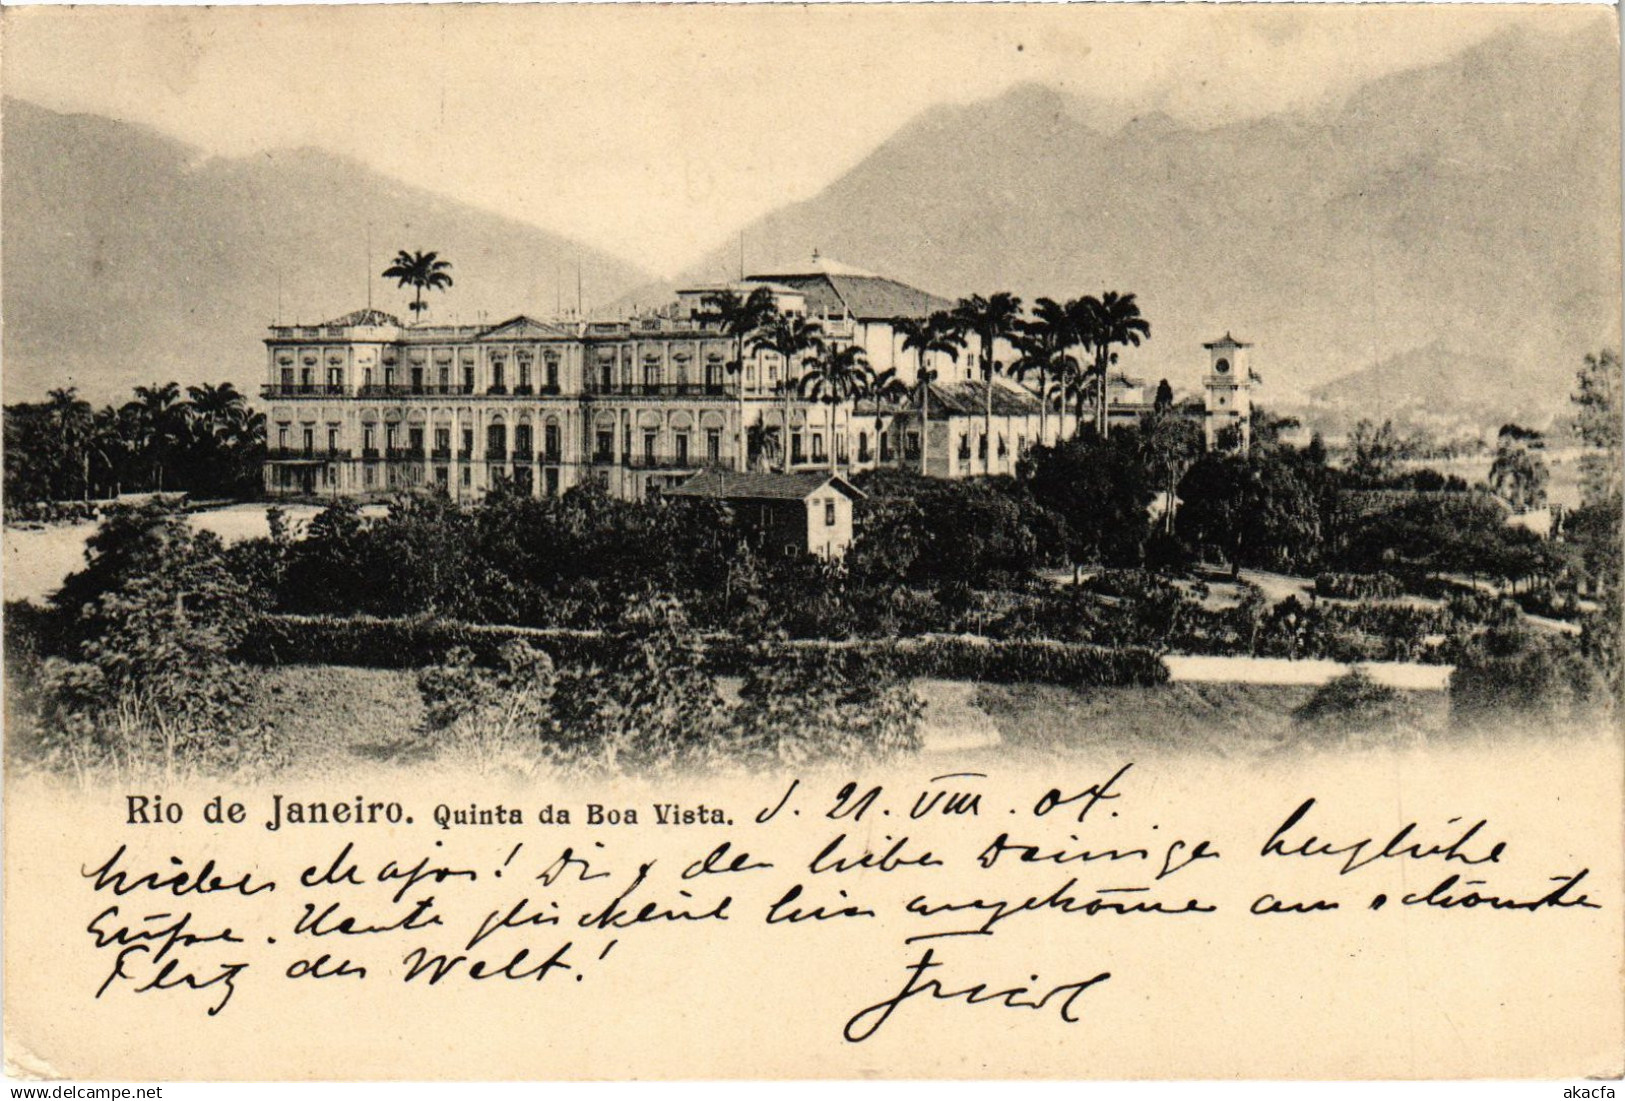 Rio de Janeiro. Quinta da Boa Vista. d. 21. VIII. 04.
lieber Major! Dir & den lieben Deinigen herzliche
Grüsse. Heute glücklich hier angekommen am schönsten
Platz der Welt!
akacfa